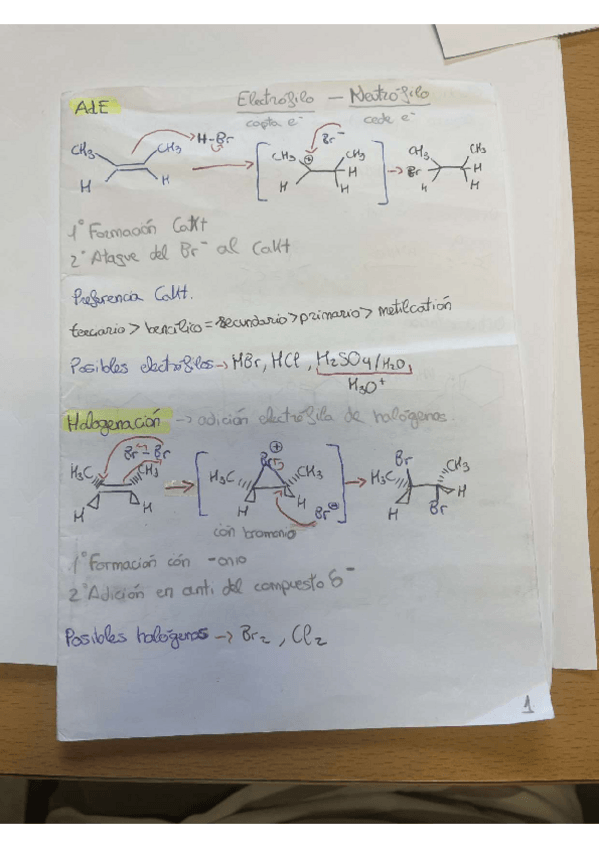 AdE
Electrófilo — Neutrófilo
capta e⁻ cede e⁻
CH₃ CH₃ H-Br H H
CH₃ ⊕ Br⁻ CH₃ H H H
CH₃ CH₃ Br H H H
1° Formación CaKt
2° Ataque del Br⁻ al CaKt
Preferencia CaKt.
terciario > bencílico = secundario > primario > metilcatión
Posibles electrófilos → HBr, HCl, H₂SO₄/H₂O,
H₃O⁺
Halogenación → adición electrófila de halógenos
H₃C Br-Br CH₃ H H
H₃C Br ⊕ CH₃ H H Br⊖
H₃C Br CH₃ H Br H
ión bromonio
1° Formación cón -onio
2° Adición en anti del compuesto δ⁻
Posibles halógenos → Br₂, Cl₂
1